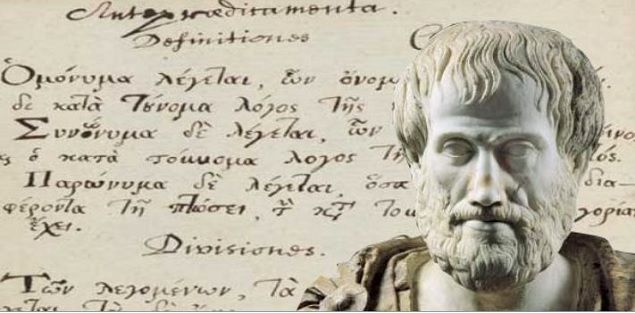 Antepraedicamenta.
Definitiones
Ὁμόνυμα λέγεται, ὧν ὄνομ
δὲ κατὰ τὔνομα λόγος τῆς
Συνώνυμα δὲ λέγεται, ὧν ινο
ς ὁ κατὰ τοὔνομα λόγος τῆ ός.
Παρώνυμα δὲ λέγεται, ὅσα δια-
φέροντα τῇ πτώσει, τ του γορίαν
ἔχει.
Divisiones.
Τῶν λεγομένων, τὰ